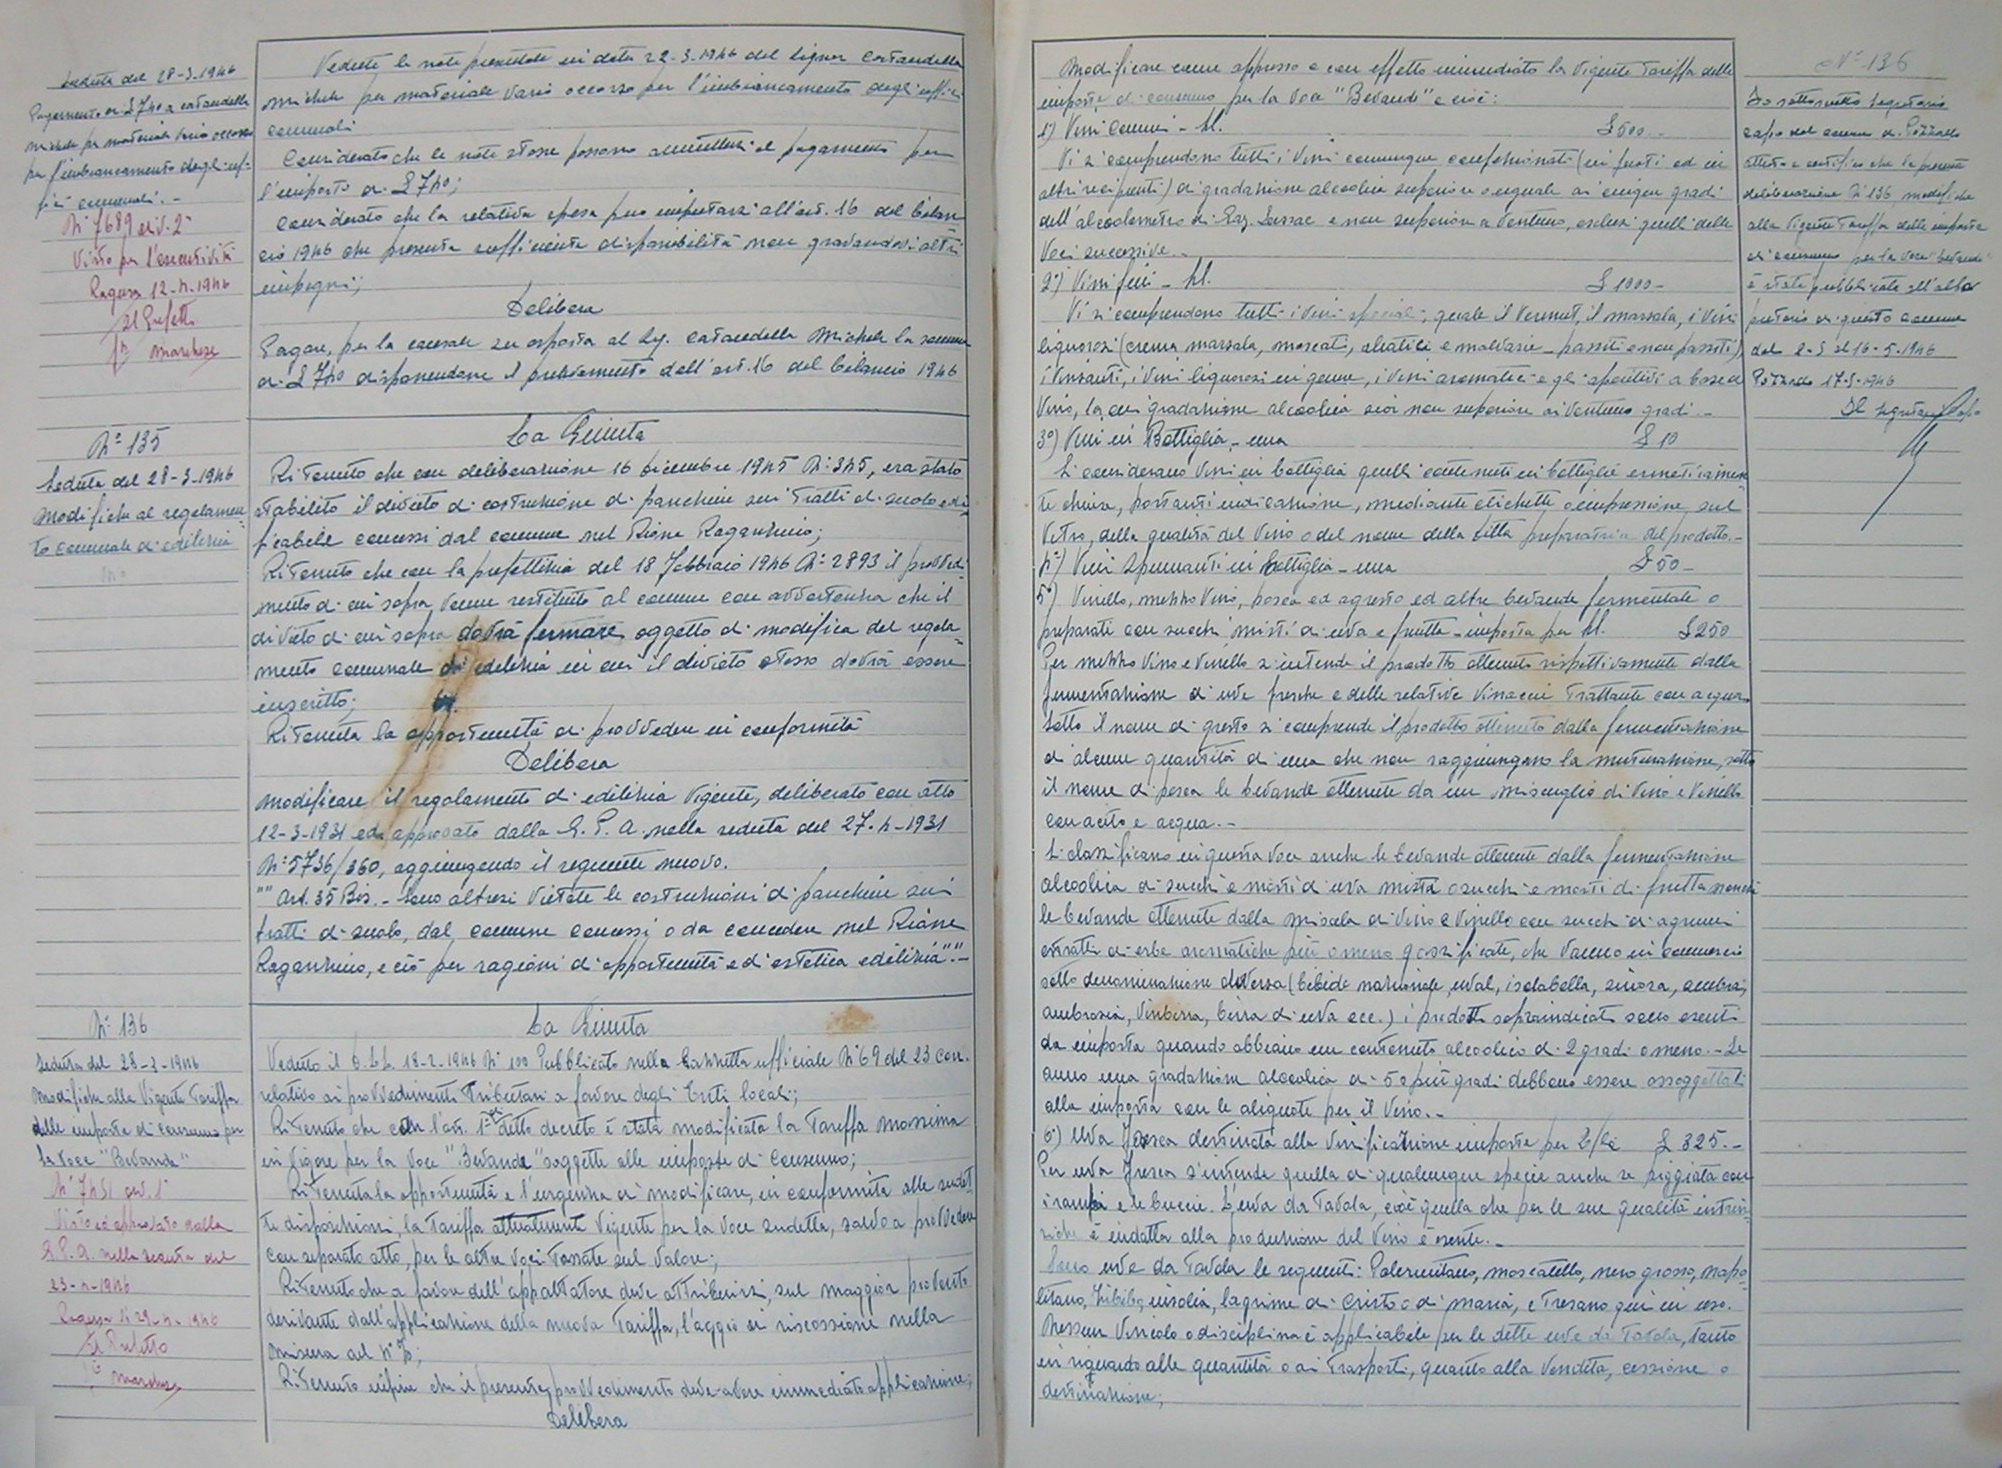 Seduta del 28-3-1946
Pagamento di £ 740 a Cataudella
Michele per materiale vario occorso
per l'imbiancamento degli uf-
fici comunali. -
N° 7689 Div. 2ª
Visto per l'esecutività
Ragusa 12-4-1946
Il Prefetto
Marchese
Vedute le note presentate in data 22-3-1946 dal Signor Cataudella
Michele per materiale vario occorso per l'imbiancamento degli uffici
comunali
Considerato che le note stesse possono ammettersi al pagamento per
l'importo di £ 740;
Considerato che la relativa spesa può impostarsi all'art. 16 del bilan
cio 1946 che presenta sufficiente disponibilità non gravandovi altri
impegni;
Delibera
Pagare, per la causale su esposta al Sig. Cataudella Michele la somma
di £ 740 disponendone il prelevamento dall'art. 16 del bilancio 1946
N° 135
Seduta del 28-3-1946
Modifiche al regolamen
to comunale di edilizia
La Giunta
Ritenuto che con deliberazione 16 dicembre 1945 N° 345, era stato
stabilito il divieto di costruzione di panchine sui tratti di suolo edi
ficabile concessi dal comune nel Rione Raganzino;
Ritenuto che con la prefettizia del 18 Febbraio 1946 N° 2893 il provvedi
mento di cui sopra venne restituito al comune con avvertenza che il
divieto di cui sopra dovrà formare oggetto di modifica del regola-
mento comunale di edilizia in cui il divieto stesso dovrà essere
inscritto;
Ritenuta la opportunità di provvedere in conformità
Delibera
Modificare il regolamento di edilizia vigente, deliberato con atto
12-3-1931 ed approvato dalla G. P. A. nella seduta del 27-4-1931
N° 5736/360, aggiungendo il seguente nuovo.
"" Art. 35 Bis. - Sono altresì vietate le costruzioni di panchine sui
tratti di suolo, dal comune concessi o da concedere nel Rione
Raganzino, e ciò per ragioni di opportunità e d'estetica edilizia"". -
N° 136
Seduta del 28-3-1946
Modifiche alla Vigente Tariffa
delle imposte di consumo per
la voce "Bevande"
N° 7451 Div. 1ª
Visto ed approvato dalla
G. P. A. nella seduta del
23-4-1946
Ragusa li 29-4-1946
Il Prefetto
Marchese
La Giunta
Veduto il D.L.L. 18-2-1946 N° 100 Pubblicato nella Gazzetta ufficiale N° 69 del 23 corr.
relativo ai provvedimenti Tributari a favore degli Enti Locali;
Ritenuto che con l'art. 1° detto decreto è stata modificata la Tariffa massima
in vigore per la voce "Bevande" soggette alle imposte di Consumo;
Ritenuta la opportunità e l'urgenza di modificare, in conformità alle sudet
te disposizioni, la Tariffa attualmente Vigente per la voce sudetta, salvo a provvedere
con separato atto, per le altre voci tassate sul valore;
Ritenuto che a favore dell'appaltatore deve attribuirsi, sul maggior provento
derivante dall'applicazione della nuova Tariffa, l'aggio di riscossione nella
misura del 4%;
Ritenuto infine che il presente provvedimento deve avere immediata applicazione;
Delibera
Modificare come appresso e con effetto immediato la Vigente Tariffa delle
imposte di consumo per la voce "Bevande" e cioè:
1°) Vini Comuni - hl. £ 500 -
Vi si comprendono tutti i vini comunque confezionati (in fusti ed in
altri recipienti) di gradazione alcoolica superiore o eguale ai cinque gradi
dell'alcoolometro di Gay. Lussac e non superiore a ventuno, esclusi quelli delle
voci successive. -
2°) Vini fini - hl. £ 1000 -
Vi si comprendono tutti i vini speciali; quale il Vermut, il marsala, i vini
liquorosi (crema marsala, moscati, aleatici e malvasie - passiti e non passiti)
i vinsanti, i vini liquorosi in genere, i vini aromatici e gli aperitivi a base di
vino, la cui gradazione alcoolica sia non superiore ai ventuno gradi. -
3°) Vini in Bottiglia - una £ 10
Si considerano vini in bottiglia quelli contenuti in bottiglie ermeticamen-
te chiusa, portanti indicazione, mediante etichette o impressione sul
vetro, della qualità del vino o del nome della Ditta preparatrice del prodotto. -
4°) Vini Spumanti in Bottiglia - una £ 50 -
5°) Vinello, mezzo vino, posca ed agresto ed altre bevande fermentate o
preparati con succhi misti di uva e frutta - imposta per hl. £ 250
Per mezzo vino e vinello s'intende il prodotto ottenuto rispettivamente dalla
fermentazione di uve fresche e delle relative vinacce trattante con acqua.
Sotto il nome di gresto si comprende il prodotto ottenuto dalla fermentazione
di alcune quantità di uva che non raggiungono la maturazione, sotto
il nome di posca le bevande ottenute da un miscuglio di vino e vinello
con aceto e acqua. -
Si classificano in questa voce anche le bevande ottenute dalla fermentazione
alcoolica di succhi e mosti di uva mista o succhi e mosti di frutta nonchè
le bevande ottenute dalla miscela di vino e vinello con succhi di agrumi
estratti di erbe aromatiche più o meno gassificate, che vanno in commercio
sotto denominazione diversa (bibide nazionale, uval, isolabella, ambra,
ambrosia, vinbirra, birra di uva ecc.) i prodotti sopraindicati sono esenti
da imposta quando abbiano un contenuto alcoolico di 2 gradi o meno. - Se
anno una gradazione alcoolica di 5 o più gradi debbono essere assoggettati
alla imposta con le aliquote per il vino. -
6°) Uva fresca destinata alla vinificazione imposta per Q/le £ 325. -
Per uva fresca s'intende quella di qualunque specie anche se pigiata con
i raspi e le buccie. L'uva da tavola, cioè quella che per le sue qualità intrin-
siche è indatta alla produzione del vino è esente. -
Sono uve da tavola le seguenti: Palermitano, moscatello, nero grosso, napo
litano, zibibo, insolia, lagrime di Cristo o di maria, e Tresano, qui in uso.
Nessun vincolo o disciplina è applicabile per le dette uve da tavola, tanto
in riguardo alle quantità o ai trasporti, quanto alla vendita, cessione o
destinazione;
N° 136
Io sottoscritto Segretario
capo del comune di Pozzallo
attesto e certifico che la presente
deliberazione N° 136 modifiche
alla Vigente Tariffa delle imposte
di consumo per la voce bevande
è stata pubblicata all'albo
pretorio di questo comune
dal 2-5 al 16-5-1946
Pozzallo 17-5-1946
Il Segretario Capo